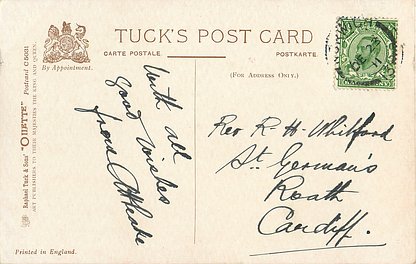 TUCK'S POST CARD
CARTE POSTALE.
POSTKARTE.
(FOR ADDRESS ONLY.)
By Appointment.
Raphael Tuck & Sons' "OILETTE" Postcard
ART PUBLISHERS TO THEIR MAJESTIES THE KING AND QUEEN.
With all
good wishes
from
Rev R. H. Whitford
St. German's
Roath
Cardiff.
DE 23
11
Printed in England.